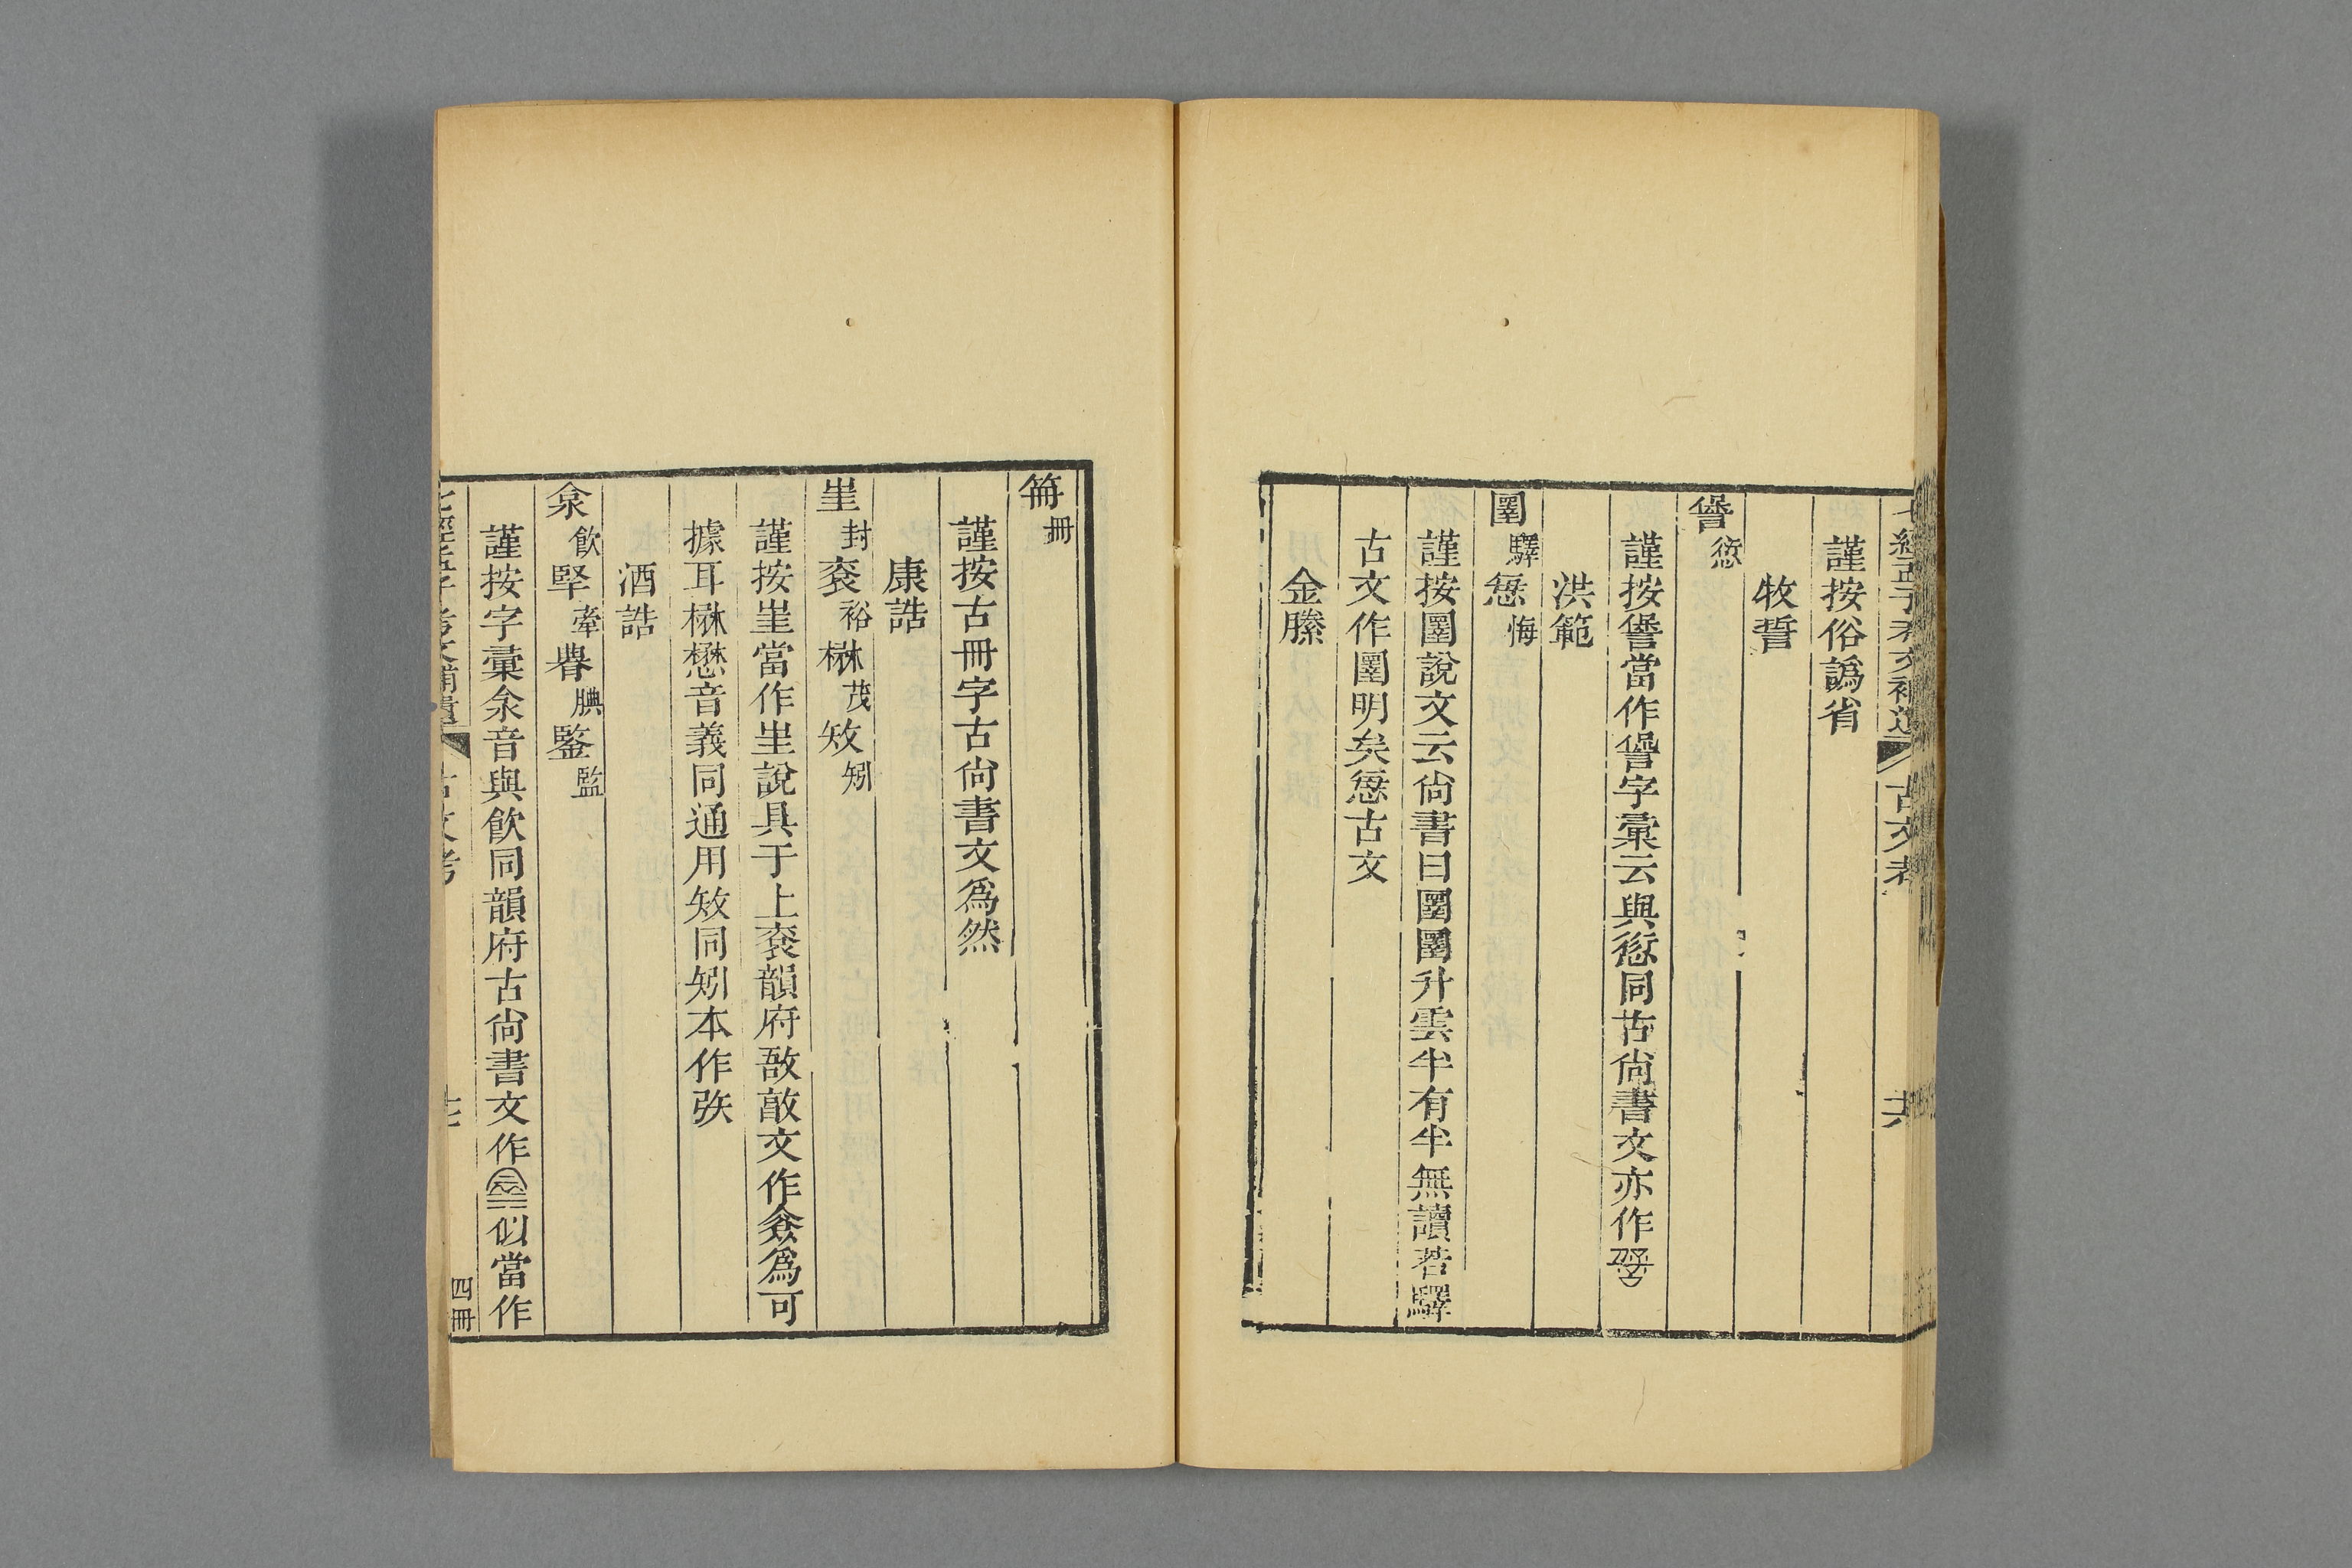 七經孟子考文補遺 古文考 十六
謹按俗譌省
牧誓
諐愆
謹按諐當作諐字彙云與愆同古尙書文亦作
洪範
圛驛悬悔
謹按圛說文云尙書曰圛圛升雲半有半無讀若驛
古文作圛明矣悬古文
金縢
笧冊
謹按古冊字古尙書文爲然
康誥
封裕楙茂矧
謹按當作說具于上韻府敔敵文作爲可
據耳楙懋音義同通用同矧本作
酒誥
飮牽腆鍳監
謹按字彙㐺音與飮同韻府古尙書文作似當作
七經孟子考文補遺 古文考 十七 四冊